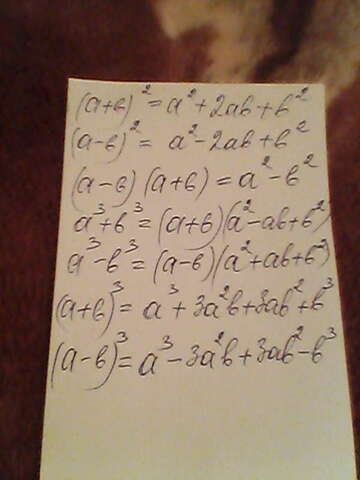 (a+b)² = a² + 2ab + b²
(a-b)² = a² - 2ab + b²
(a-b)(a+b) = a² - b²
a³+b³ = (a+b)(a²-ab+b²)
a³-b³ = (a-b)(a²+ab+b²)
(a+b)³ = a³ + 3a²b + 3ab² + b³
(a-b)³ = a³ - 3a²b + 3ab² - b³